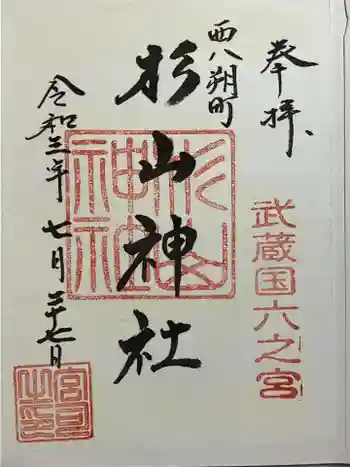 奉拝
武蔵国六之宮
西八朔町
杉山神社
令和三年七月二十七日
杉山神社
宮司之印